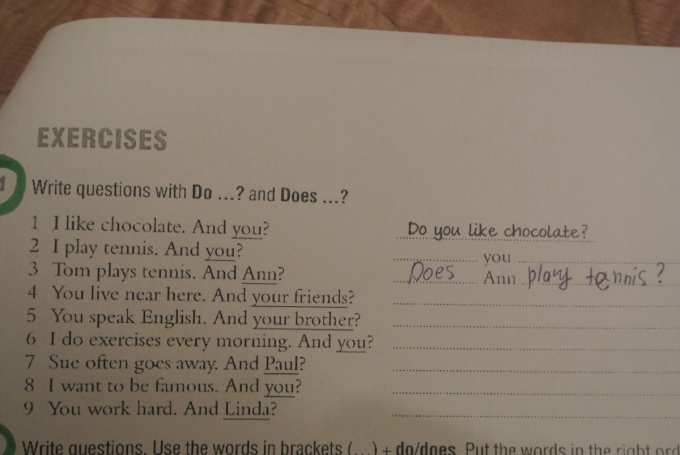 EXERCISES
1 Write questions with Do ...? and Does ...?
1 I like chocolate. And you? Do you like chocolate?
2 I play tennis. And you? you
3 Tom plays tennis. And Ann? Does Ann play tennis?
4 You live near here. And your friends?
5 You speak English. And your brother?
6 I do exercises every morning. And you?
7 Sue often goes away. And Paul?
8 I want to be famous. And you?
9 You work hard. And Linda?
Write questions. Use the words in brackets (...) + do/does. Put the words in the right